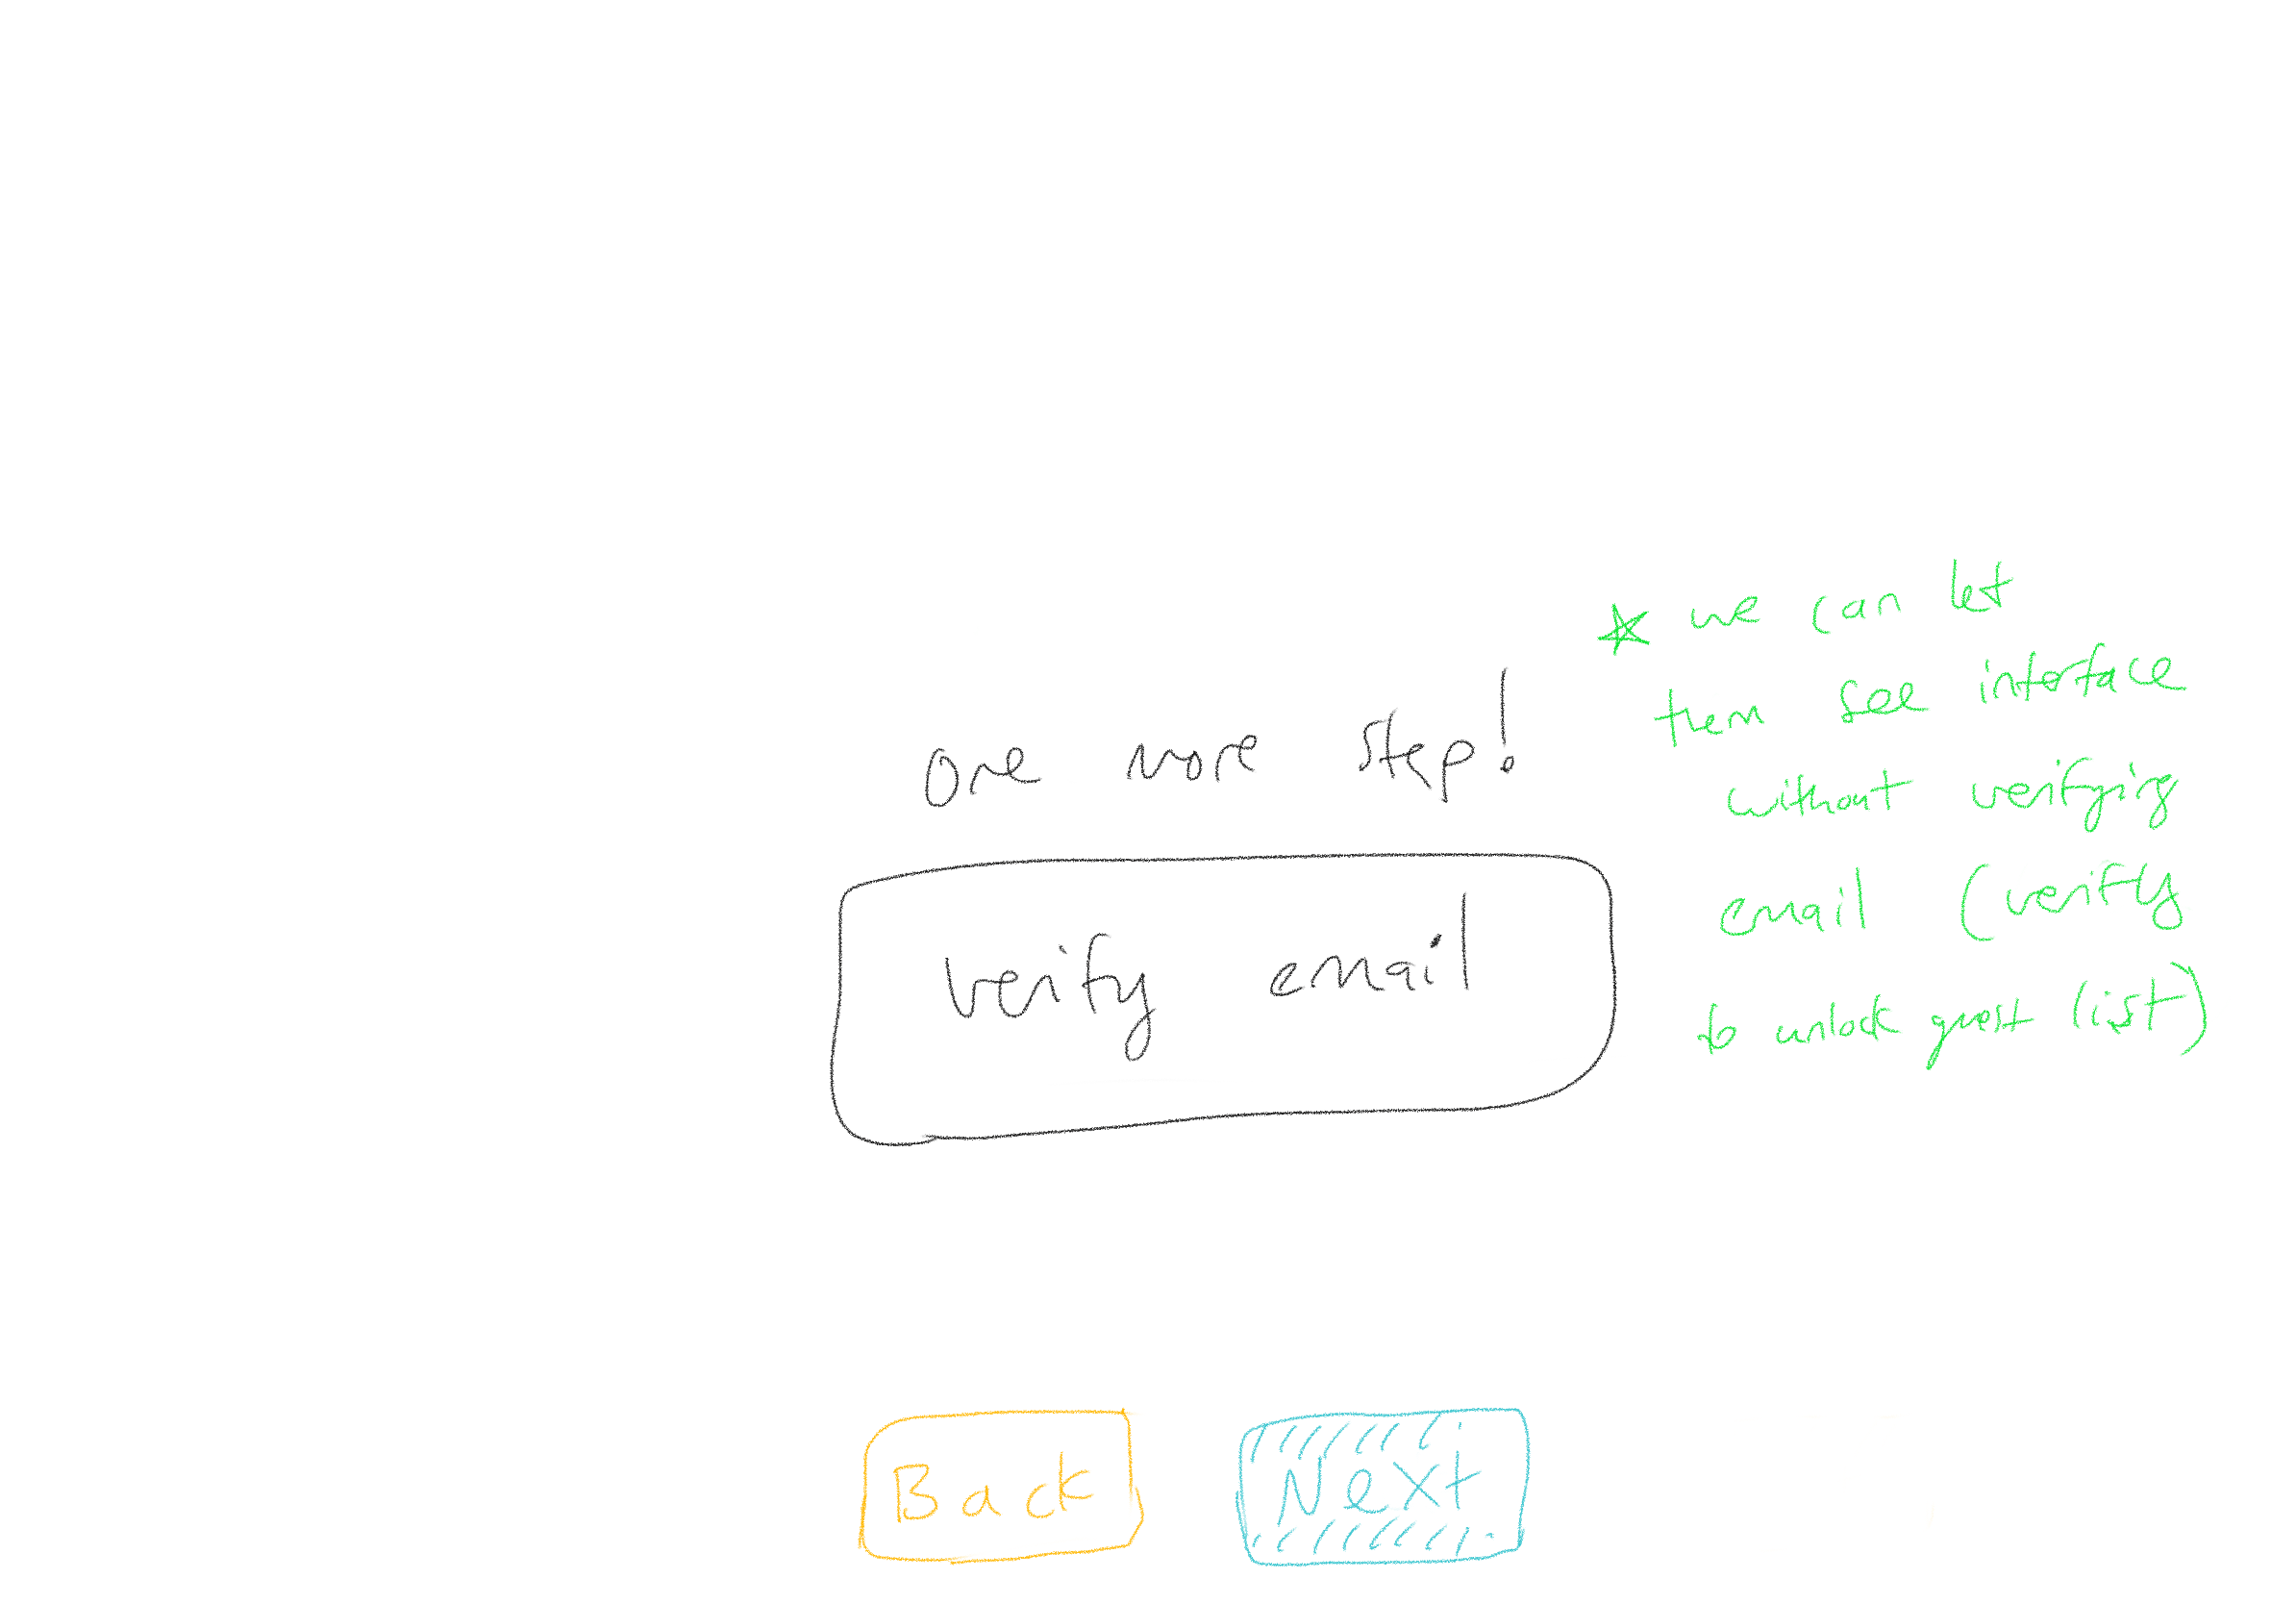 one more step!
verify email
☆ we can let
them see interface
without verifying
email (verify
to unlock guest list)
Back
Next